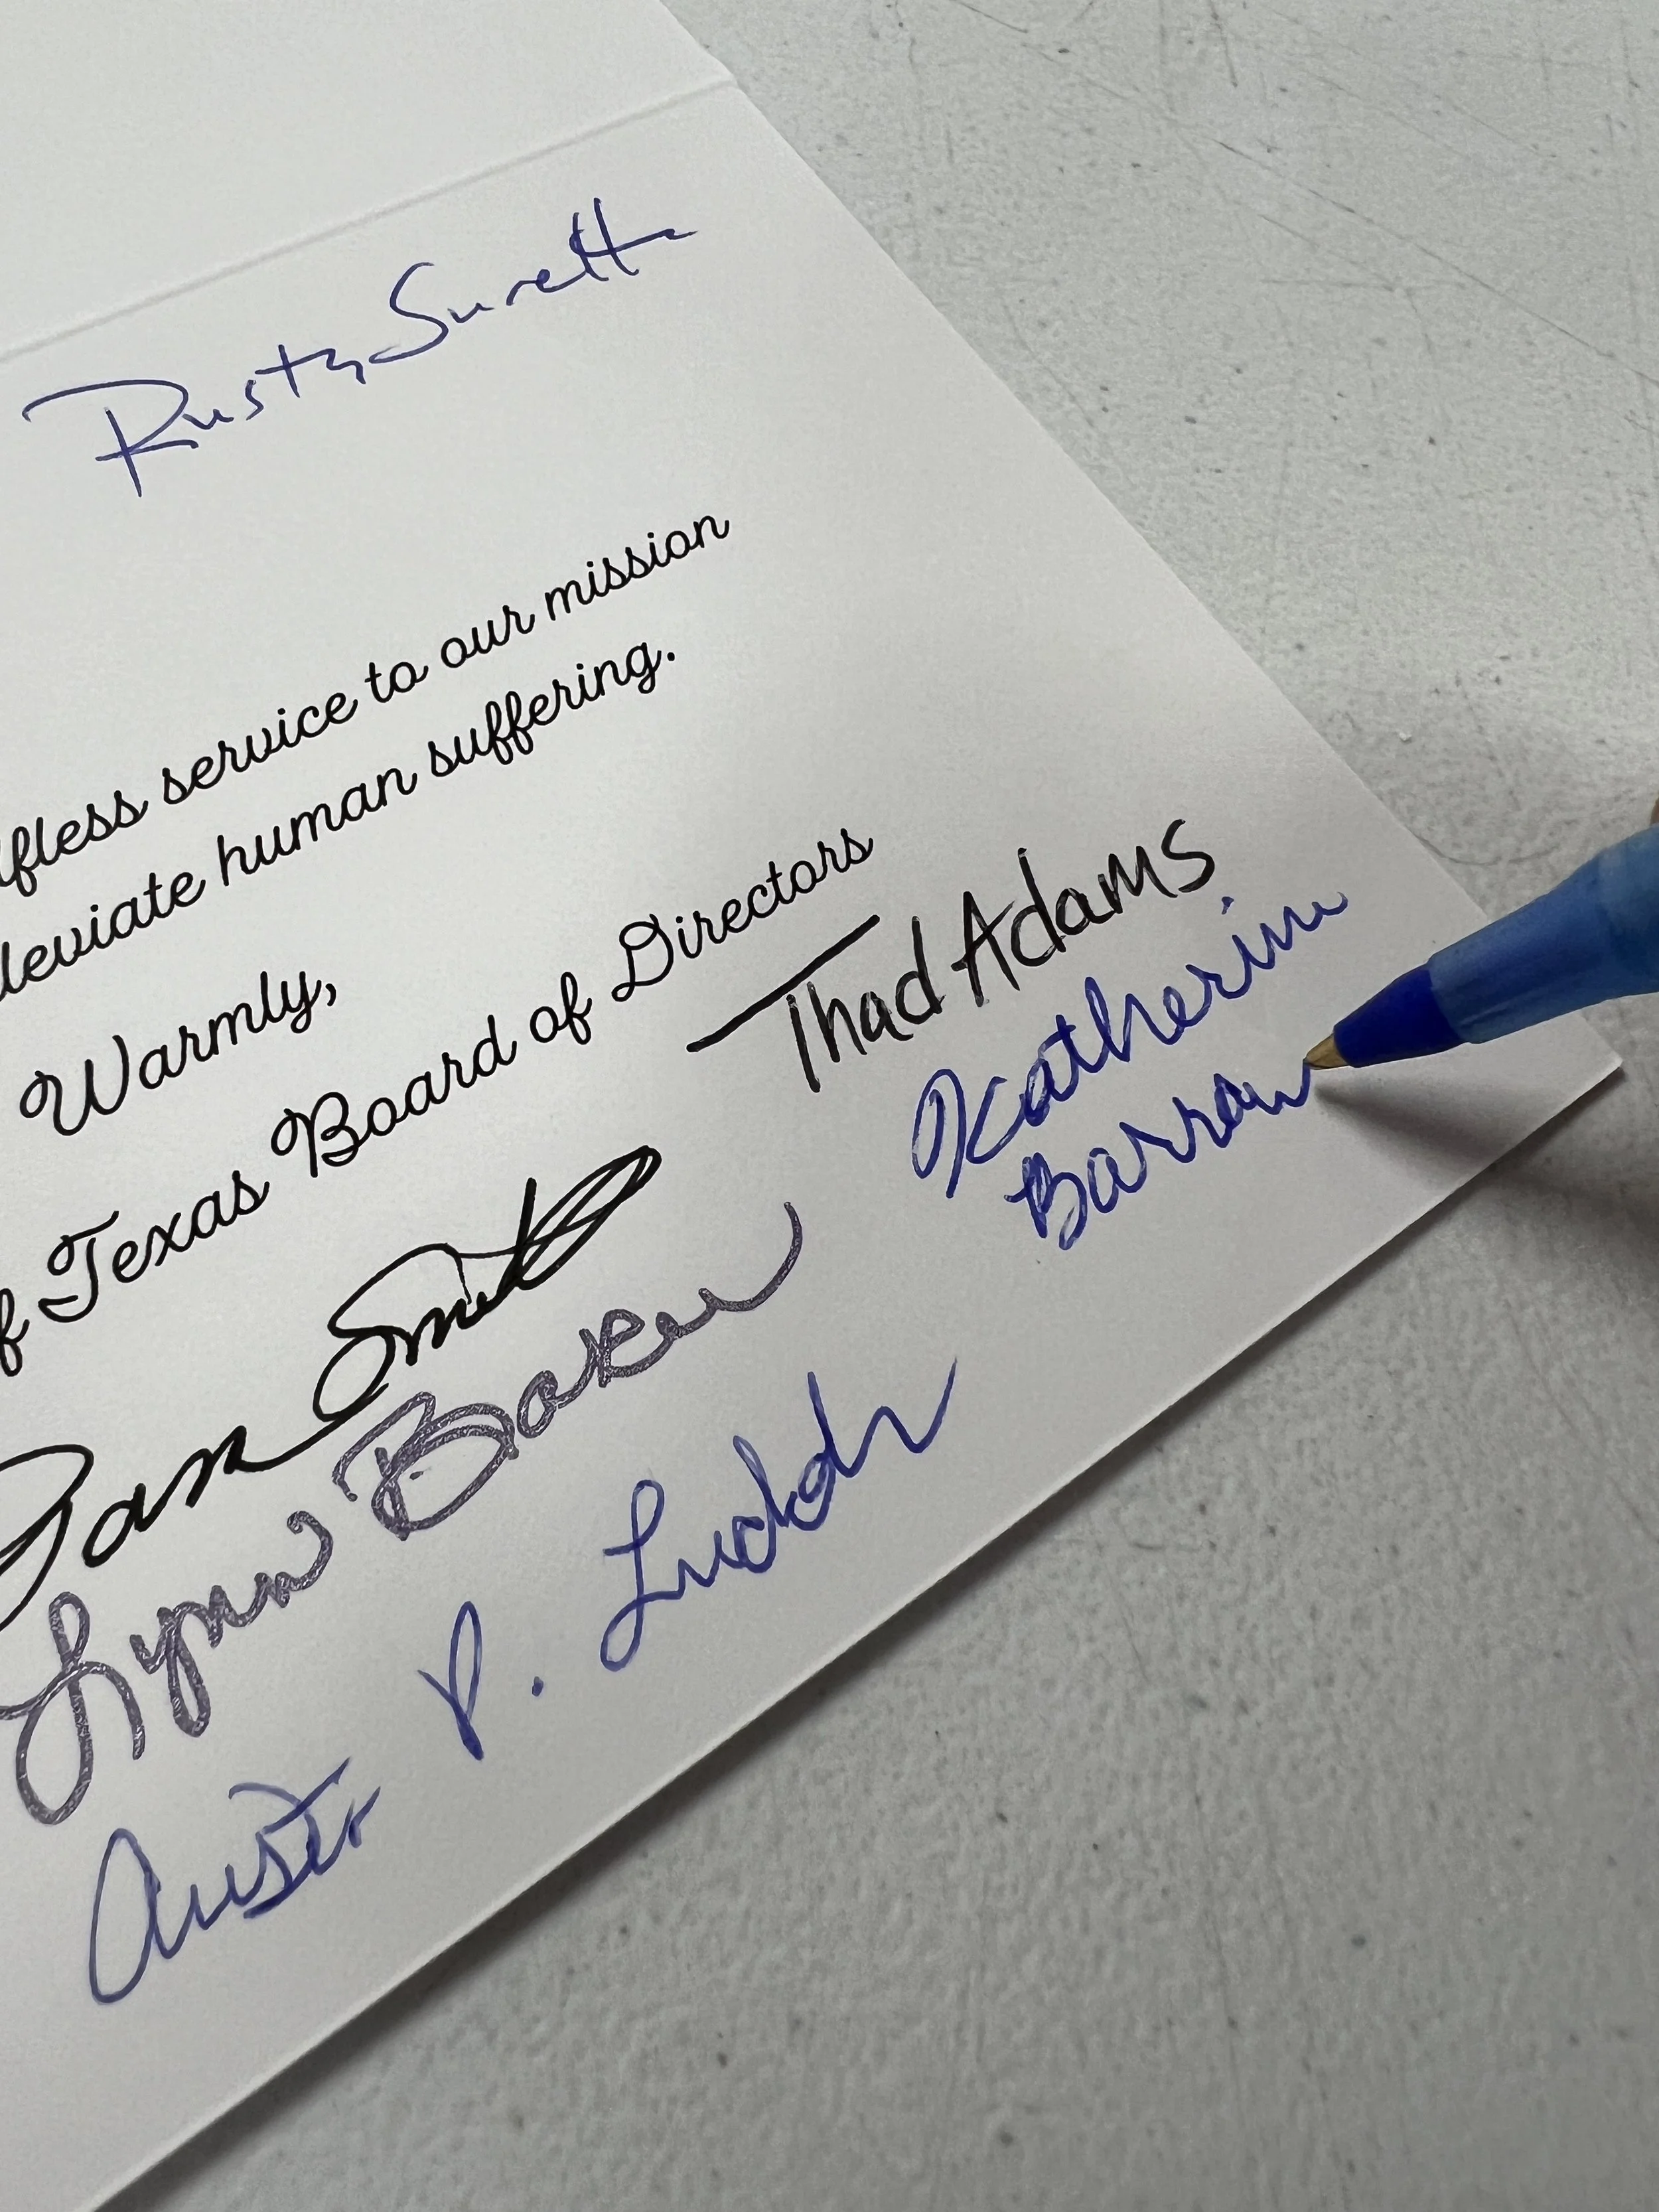 Rusty Surette
fless service to our mission
leviate human suffering.
Warmly,
f Texas Board of Directors
Thad Adams
Katherine
Barrow
Pam Smith
Lynn Baker
Austo P.